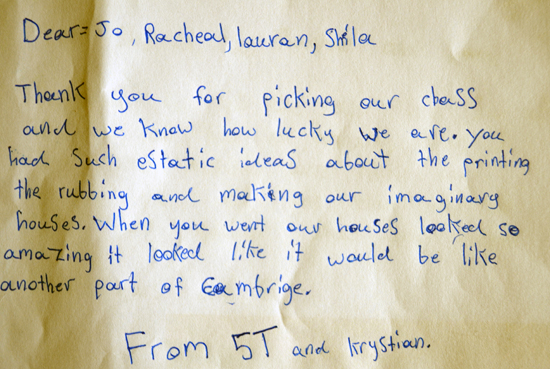 Dear= Jo, Racheal, lauran, Shila
Thank you for picking our class
and we know how lucky we are. you
had such estatic ideas about the printing
the rubbing and making our imaginary
houses. When you went our houses looked so
amazing it looked like it would be like
another part of Cambrige.
From 5T and krystian.